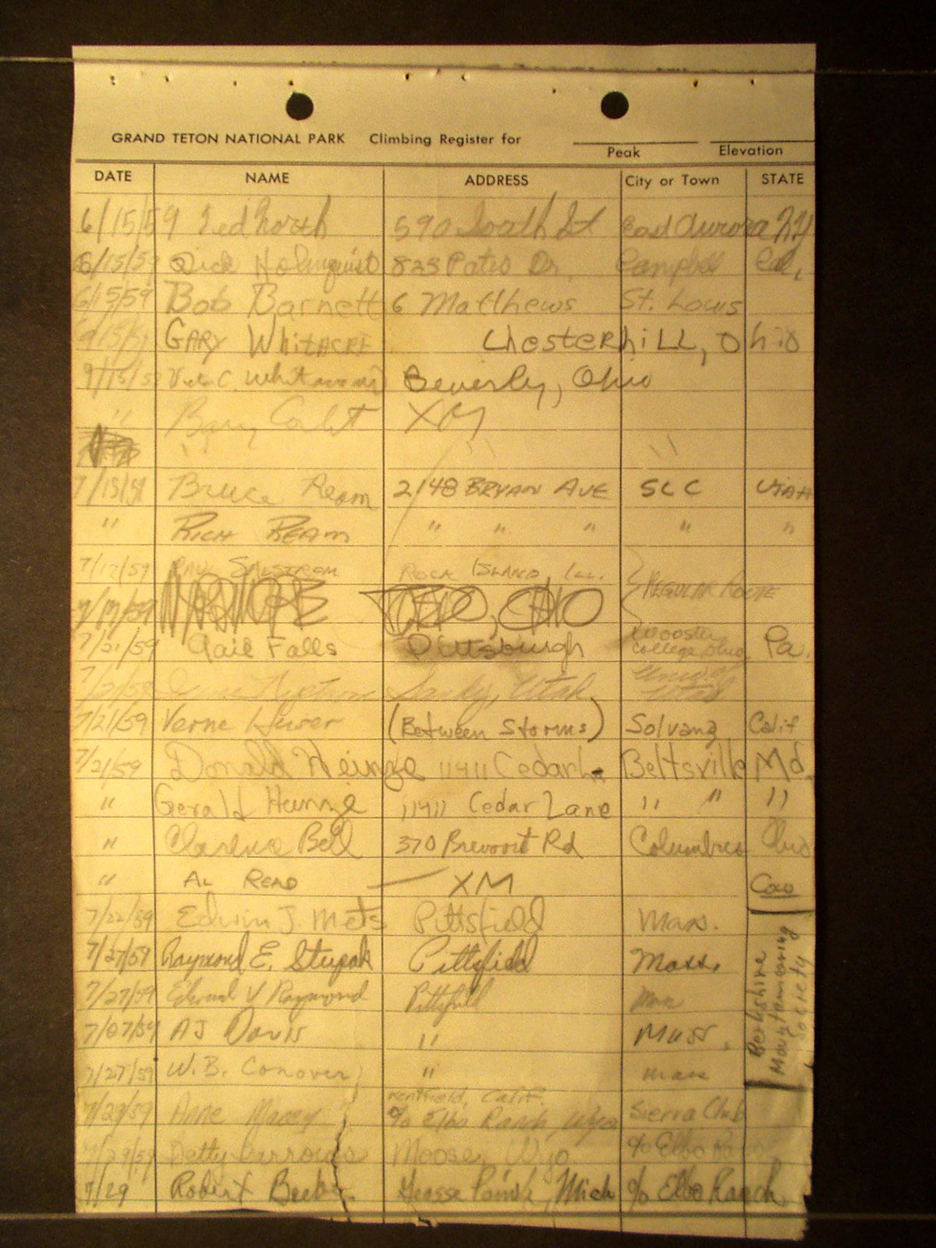 GRAND TETON NATIONAL PARK Climbing Register for
Peak Elevation
DATE NAME ADDRESS City or Town STATE
6/15/59 Ted North 590 South St East Aurora NY
6/15/59 Dick Holmquist 825 Pates Dr. Campbell Cal.
6/15/59 Bob Barnett 6 Matthews St. Louis
GARY WHITACRE Chesterhill, Ohio
C. Beverly, Ohio
" XM
" "
Bruce Ream 2148 BRYAN AVE SLC UTAH
" RICH REAM " " " " "
7/17/59 PAUL SALSTROM ROCK ISLAND ILL. REGULAR ROUTE
7/21/59 Gail Falls Pittsburgh Wooster College Pa.
7/21/59 Sandy, Utah Univ. of Utah
7/21/59 Verne (Between Storms) Solvang Calif
7/21/59 Donald Heinze 11911 Cedar Ln Beltsville Md.
" Gerald Heinze 11911 Cedar Lane " " "
" Clarence Bell 370 Brevoort Rd Columbus Ohio
" AL READ — XM
7/22/59 Edwin J. Mets Pittsfield Mass.
7/27/59 Raymond E. Stupak Pittsfield Mass.
7/27/59 Edward V Raymond Pittsfield Mass
AJ Davis " Mass.
7/27/59 W.B. Conover " Mass
Berkshire Mountaineering Society
Kentfield, Calif.
7/29/59 Anne Macey c/o Elbo Ranch, Wyo Sierra Club
7/29/59 Betty Burrows Moose, Wyo. c/o Elbo Ranch
7/29 Robert Grosse Pointe, Mich c/o Elbo Ranch